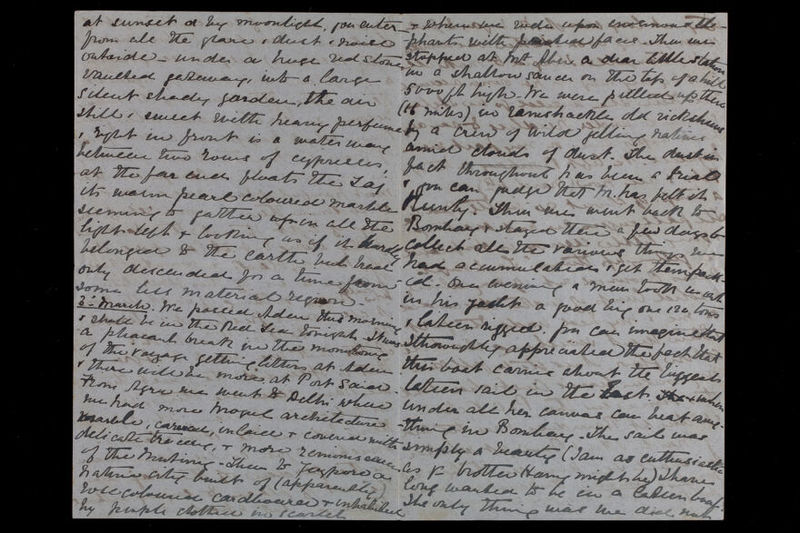 at sunset or by moonlight, you enter
from all the glare & dust & noise
outside - under a huge red stone
vaulted gateway, into a large
silent shady garden, the air
still & sweet with heavy perfume
& right in front is a water way
between two rows of cypresses,
at the far end floats the Taj
its warm pearl coloured marble
seeming to gather upon all the
light left & looking as if it hardly
belonged to the earth but had
only descended for a time from
some less material region.
2d March. We passed Aden this morning
& shall be in the Red Sea tonight. It was
a pleasant break in the monotony
of the voyage getting letters at Aden
& there will be more at Port Said.
From Agra we went to Delhi where
we had more Mogul architecture -
marble, carved, inlaid & covered with
delicate tracery, & more reminiscences
of the Mutiny - Then to Jeypore a
native city built of (apparently)
rose coloured cardboard & inhabited
by people clothed in scarlet
& where we rode upon enormous ele-
phants with painted faces. Then we
stopped at Mt Abu a dear little station
in a shallow saucer on the top of a hill
5000 ft high. We were pulled up there
(16 miles) in ramshackle old rickshaws
by a crew of wild yelling natives
amid clouds of dust. The dust in
fact throughout has been a trial
& you can judge that M. has felt it
Then we went back to
Bombay & stayed there a few days to
collect all the various things we
had accumulated & get them pack-
ed, one evening a man took us out
in his yacht a good big one 120 tons
& lateen rigged. You can imagine that
I thoroughly appreciated the fact that
this boat carries about the biggest
lateen sail in the East & when
under all her canvas can beat any-
thing in Bombay. The sail was
simply a beauty (I am as enthusiastic
as yr brother Harry might be) I have
long wanted to be in a lateen boat.
The only thing was we did not